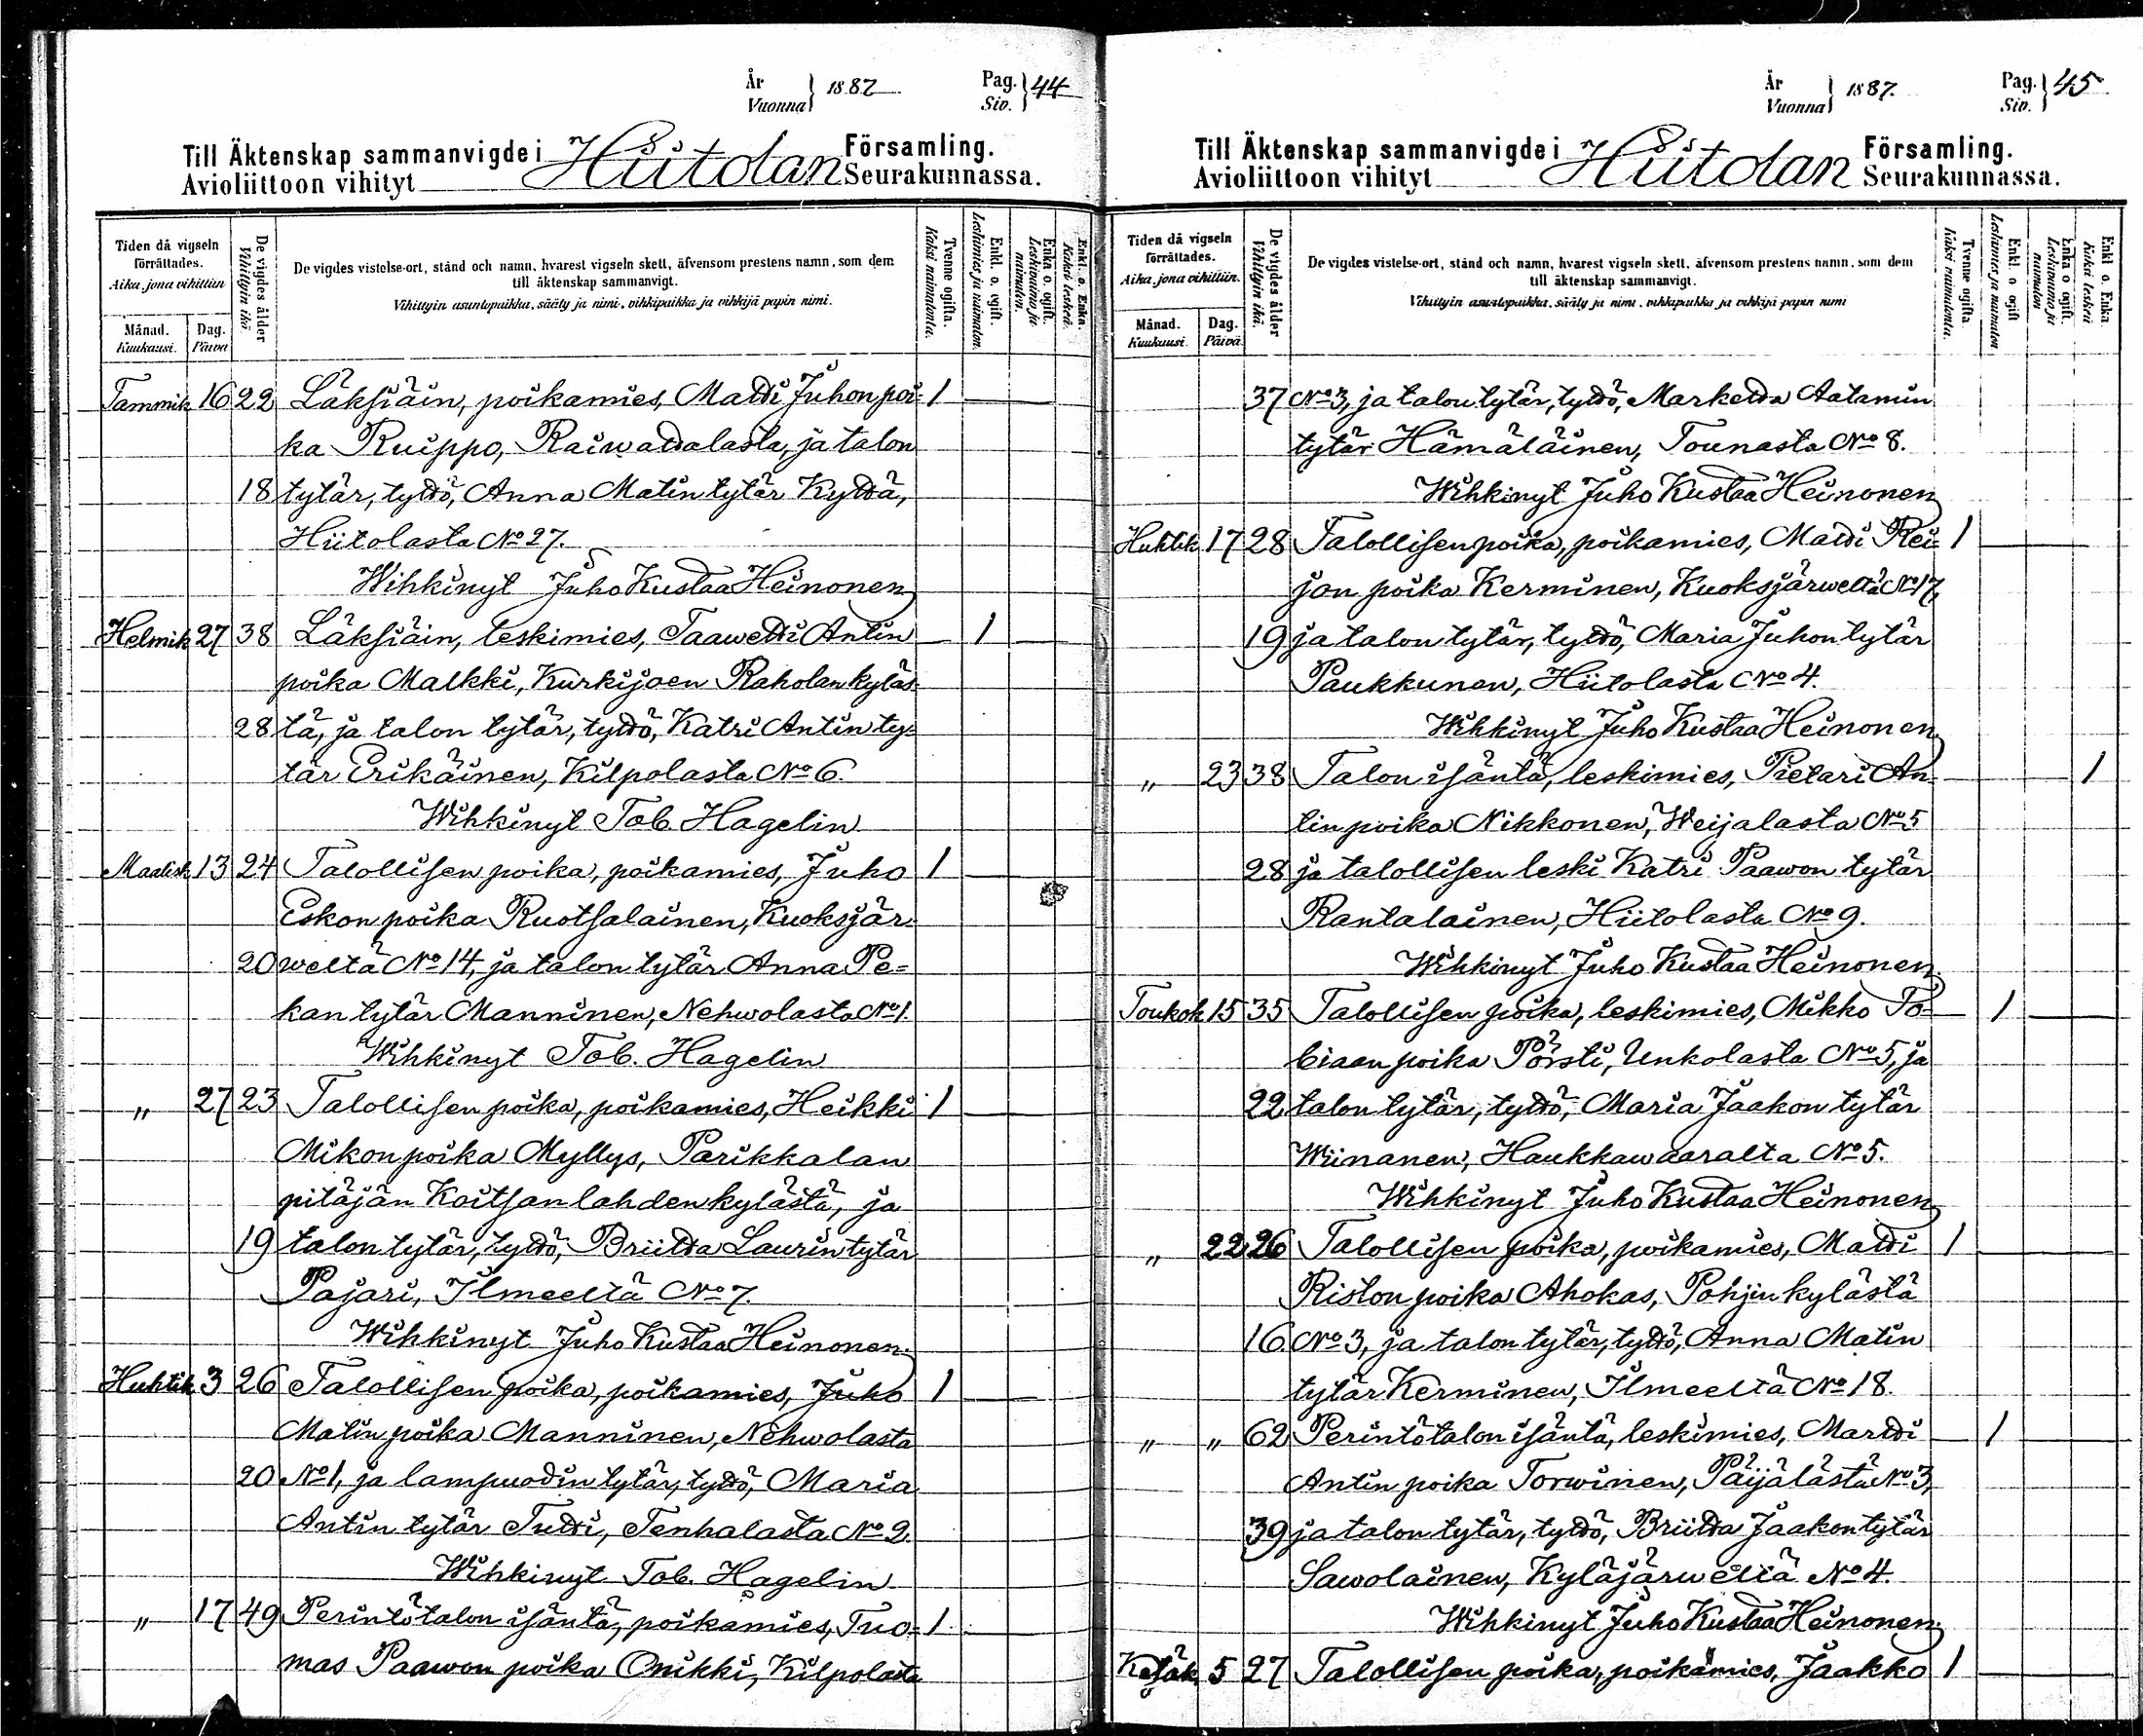 År
Vuonna } 1887
Pag.
Siv. } 44
Till Äktenskap sammanvigde i Hiitolan Församling.
Avioliittoon vihityt Seurakunnassa.
Tiden då vigseln förrättades.
Aika, jona vihittiin
Månad.
Kuukausi.
Dag.
Päivä
De vigdes ålder
Vihittyin ikä.
De vigdes vistelse-ort, stånd och namn, hvarest vigseln skett, äfvensom prestens namn, som dem
till äktenskap sammanvigt.
Vihittyin asuntopaikka, sääty ja nimi, vihkipaikka ja vihkijä papin nimi.
Tvenne ogifta.
Kaksi naimatonta.
Enkl. o. ogift.
Leskimies ja naimaton.
Enka o. ogift.
Leskivaimo ja naimaton.
Enkl. o. Enka.
Kaksi leskeä.
Tammik 16 22 Läksiäin, poikamies, Matti Juhon poi- 1
ka Ruippo, Raiwattalasta, ja talon
18 tytär, tyttö, Anna Matin tytär Kyttä,
Hiitolasta No 27.
Wihkinyt Juho Kustaa Heinonen
Helmik 27 38 Läksiäin, leskimies, Taawetti Antin 1
poika Malkki, Kurkijoen Raholan kyläs-
28 tä, ja talon tytär, tyttö, Katri Antin ty-
tär Erikäinen, Kilpolasta No 6.
Wihkinyt Tob. Hagelin
Maalisk 13 24 Talollisen poika, poikamies, Juho 1
Eskon poika Ruotsalainen, Kuoksjär-
20 weltä No 14, ja talon tytär Anna Pe=
kan tytär Manninen, Nehwolasta No 1.
Wihkinyt Tob. Hagelin
" 27 23 Talollisen poika, poikamies, Heikki 1
Mikon poika Myllys, Parikkalan
pitäjän Koitsanlahden kylästä, ja
19 talon tytär, tyttö, Briitta Laurin tytär
Pajari, Ilmeeltä No 7.
Wihkinyt Juho Kustaa Heinonen.
Huhtik 3 26 Talollisen poika, poikamies, Juho 1
Matin poika Manninen, Nehwolasta
20 No 1, ja lampuodin tytär, tyttö, Maria
Antin tytär Tutti, Tenhalasta No 2.
Wihkinyt Tob. Hagelin
" 17 49 Perintötalon isäntä, poikamies, Tuo= 1
mas Paawon poika Onikki, Kilpolasta
År
Vuonna } 1887.
Pag.
Siv. } 45
Till Äktenskap sammanvigde i Hiitolan Församling.
Avioliittoon vihityt Seurakunnassa.
Tiden då vigseln förrättades.
Aika, jona vihittiin.
Månad.
Kuukausi.
Dag.
Päivä.
De vigdes ålder
Vihittyin ikä.
De vigdes vistelse-ort, stånd och namn, hvarest vigseln skett, äfvensom prestens namn, som dem
till äktenskap sammanvigt.
Vihittyin asuntopaikka, sääty ja nimi, vihkipaikka ja vihkijä papin nimi
Tvenne ogifta
Kaksi naimatonta.
Enkl. o ogift
Leskimies ja naimaton
Enka o ogift.
Leskivaimo ja naimaton
Enkl o. Enka.
Kaksi leskeä
37 No 3, ja talon tytär, tyttö, Marketta Aatamin
tytär Hämäläinen, Tounasta No 8.
Wihkinyt Juho Kustaa Heinonen
Huhtik 17 28 Talollisen poika, poikamies, Matti Rei- 1
jon poika Kerminen, Kuoksjärweltä No 17,
19 ja talon tytär, tyttö, Maria Juhon tytär
Paukkunen, Hiitolasta No 4.
Wihkinyt Juho Kustaa Heinonen.
" 23 38 Talon isäntä, leskimies, Pietari An- 1
tin poika Nikkonen, Weijalasta No 5
28 ja talollisen leski Katri Paawon tytär
Rantalainen, Hiitolasta No 9.
Wihkinyt Juho Kustaa Heinonen.
Toukok 15 35 Talollisen poika, leskimies, Mikko To- 1
biaan poika Pörsti, Unkolasta No 5, ja
22 talon tytär, tyttö, Maria Jaakon tytär
Wiinanen, Haukkawaaralta No 5.
Wihkinyt Juho Kustaa Heinonen
" 22 26 Talollisen poika, poikamies, Matti 1
Riston poika Ahokas, Pohjin kylästä
16 No 3, ja talon tytär, tyttö, Anna Matin
tytär Kerminen, Ilmeeltä No 18.
" " 62 Perintötalon isäntä, leskimies, Martti 1
Antin poika Torwinen, Päijälästä No 3,
39 ja talon tytär, tyttö, Briitta Jaakon tytär
Sawolainen, Kyläjärweltä No 4.
Wihkinyt Juho Kustaa Heinonen.
Kesäk. 5 27 Talollisen poika, poikamies, Jaakko 1